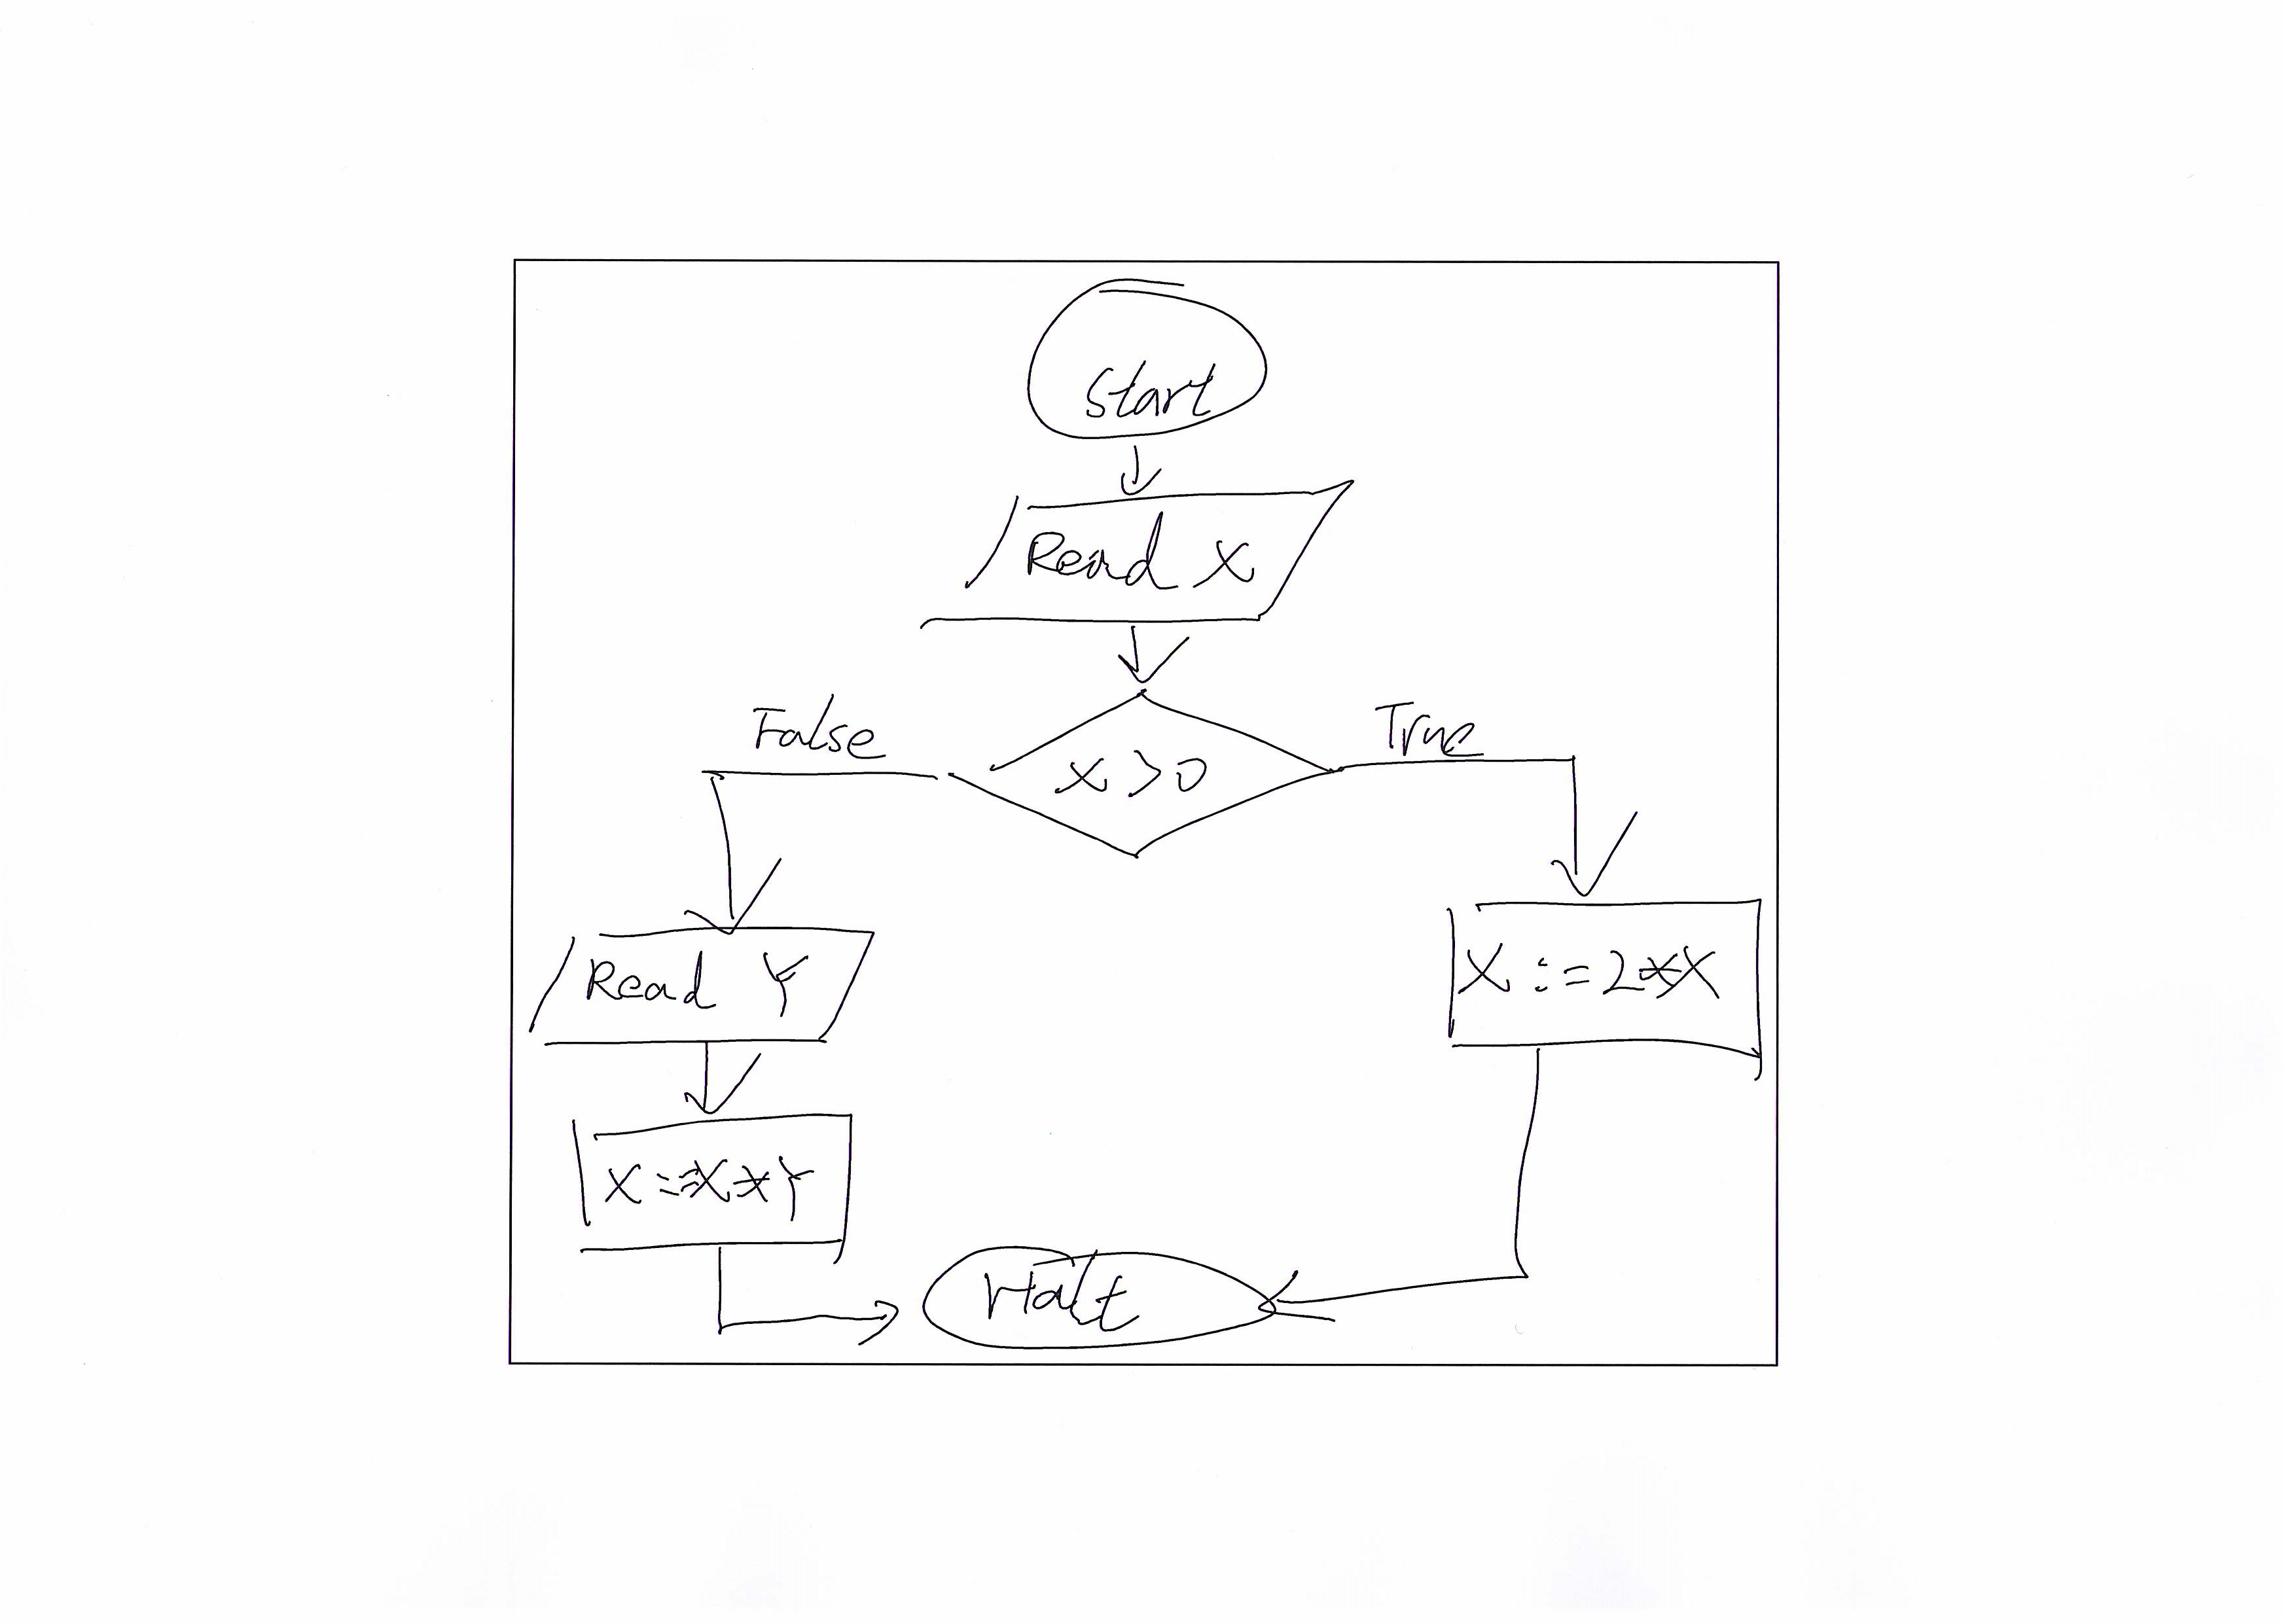 Start
Read X
False
True
X > 0
Read Y
X := 2*X
X := X * Y
Halt